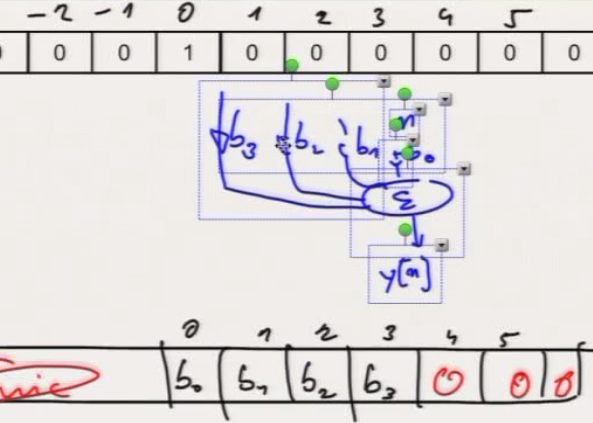 -2 -1 0 1 2 3 4 5
0 0 1 0 0 0 0 0 0
n
b₃ b₂ b₁ b₀
Σ
y[n]
0 1 2 3 4 5
b₀ b₁ b₂ b₃ 0 0 0